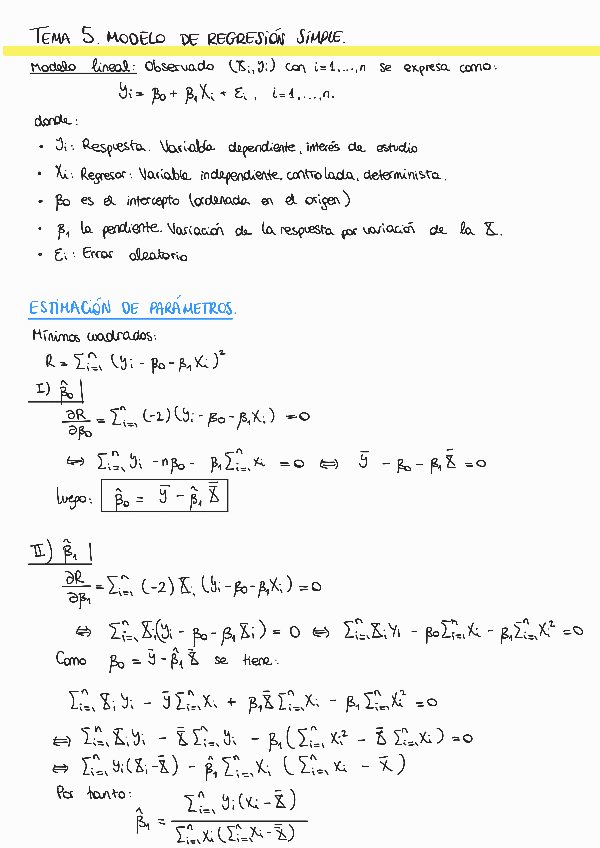 TEMA 5. MODELO DE REGRESIÓN SIMPLE.
Modelo lineal: Observado (X̄i, yi) con i=1,...,n se expresa como:
yi = β0 + β1 Xi + εi, i=1,...,n.
donde:
• yi: Respuesta. Variable dependiente, interés de estudio
• Xi: Regresor: Variable independiente, controlada, determinista.
• β0 es el intercepto (ordenada en el origen)
• β1 la pendiente. Variación de la respuesta por variación de la X.
• εi: Error aleatorio
ESTIMACIÓN DE PARÁMETROS.
Mínimos cuadrados:
R = Σⁿi=1 (yi - β0 - β1 Xi)²
I) β̂0
∂R/∂β0 = Σⁿi=1 (-2)(yi - β0 - β1 Xi) = 0
⇔ Σⁿi=1 yi - nβ0 - β1 Σⁿi=1 xi = 0 ⇔ ȳ - β0 - β1 X̄ = 0
luego: β̂0 = ȳ - β̂1 X̄
II) β̂1
∂R/∂β1 = Σⁿi=1 (-2) Xi (yi - β0 - β1 Xi) = 0
⇔ Σⁿi=1 Xi(yi - β0 - β1 Xi) = 0 ⇔ Σⁿi=1 Xi Yi - β0 Σⁿi=1 Xi - β1 Σⁿi=1 Xi² = 0
Como β0 = ȳ - β̂1 X̄ se tiene:
Σⁿi=1 Xi yi - ȳ Σⁿi=1 Xi + β1 X̄ Σⁿi=1 Xi - β1 Σⁿi=1 Xi² = 0
⇔ Σⁿi=1 Xi yi - X̄ Σⁿi=1 yi - β1 (Σⁿi=1 Xi² - X̄ Σⁿi=1 Xi) = 0
⇔ Σⁿi=1 yi(Xi - X̄) - β̂1 Σⁿi=1 Xi (Σⁿi=1 Xi - X̄)
Por tanto:
β̂1 = Σⁿi=1 yi(Xi - X̄) / Σⁿi=1 Xi(Σⁿi=1 Xi - X̄)